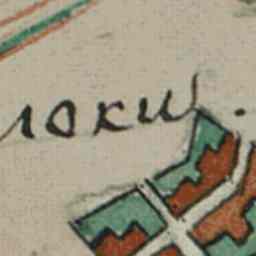 локи.